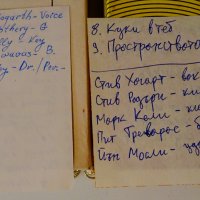 ogarth - Voice
othery - G
lly - Key
wavas - B.
ey - Dr./Perc.-
8. Куки в теб
9. Пространството
Стив Хогарт - вок
Стив Родъри - ки
Марк Кели - кл
Пит Тревърас - б
Иън Мозли - уда